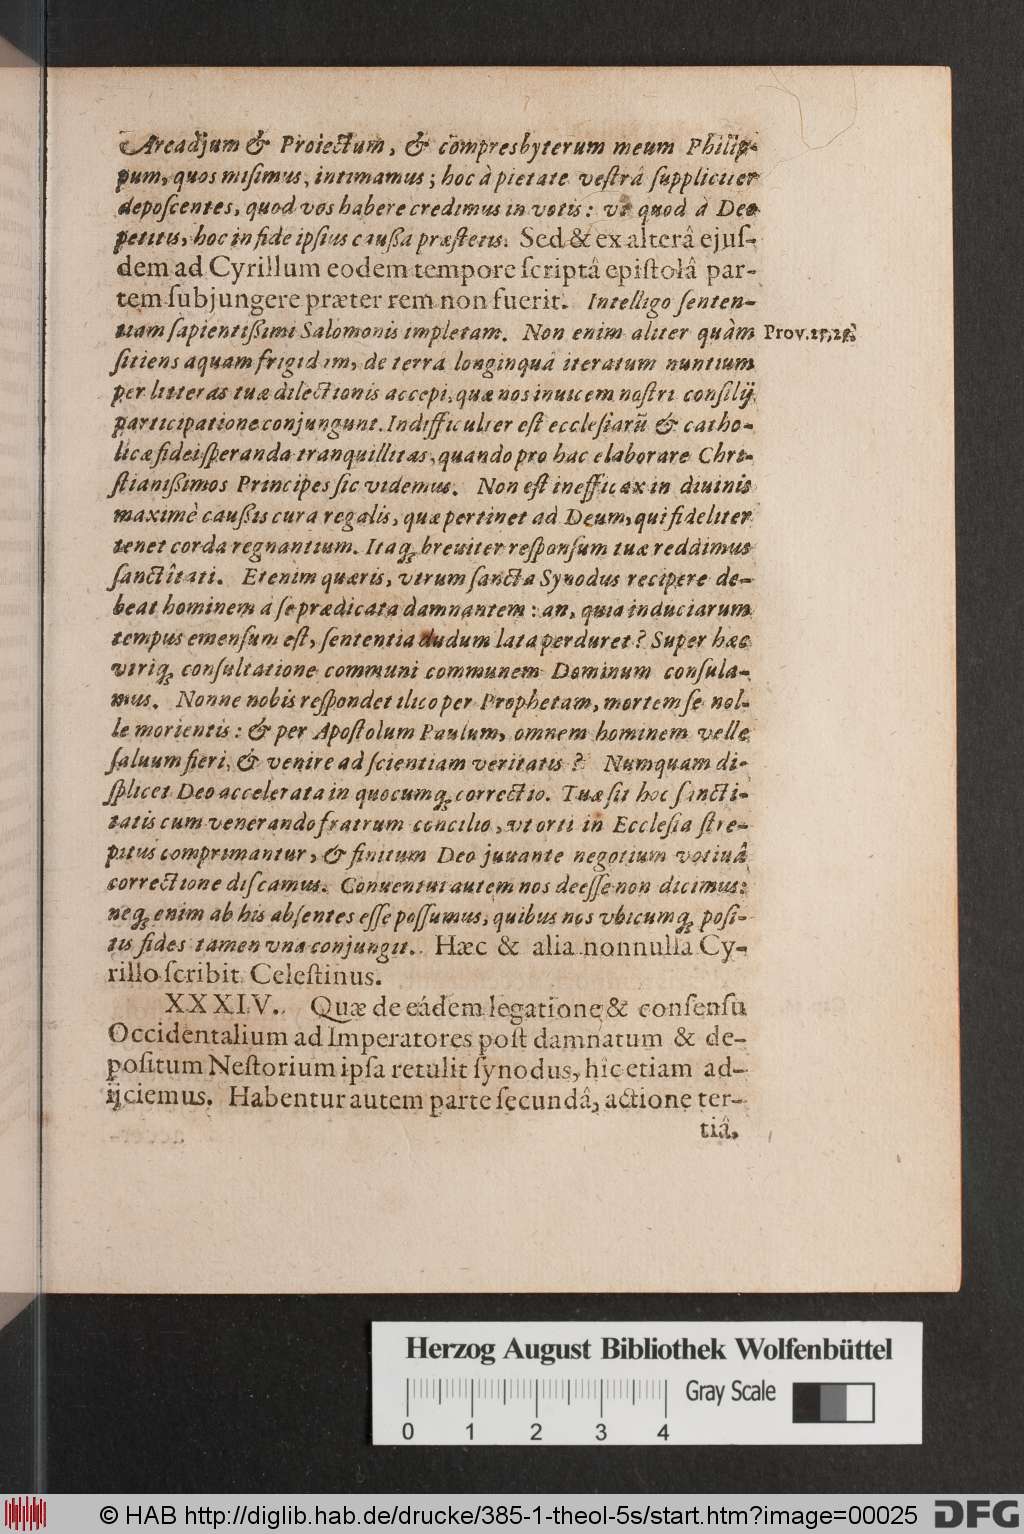 Arcadjum & Proiectum, & cõpresbyterum meum Philip-
pum, quos misimus, intimamus; hoc à pietate vestrâ suppliciter
deposcentes, quod vos habere credimus in votis: vt quod à Deo
petitis, hoc in fide ipsius caußa præstetis. Sed & ex alterâ ejus-
dem ad Cyrillum eodem tempore scriptâ epistolâ par-
tem subjungere præter rem non fuerit. Intelligo senten-
tiam sapientißimi Salomonis impletam. Non enim aliter quàm
Prov. 25, 25.
sitiens aquam frigidam, de terrâ longinquâ iteratum nuntium
per litteras tuæ dilectionis accepi, quæ nos inuicem nostri consilij
participatione conjungunt. Indifficulter est ecclesiarũ & catho-
licæ fidei speranda tranquillitas, quando pro hac elaborare Chri-
stianißimos Principes sic videmus. Non est inefficax in diuinis
maximè caußis cura regalis, quæ pertinet ad Deum, qui fideliter
tenet corda regnantium. Itaq; breuiter responsum tuæ reddimus
sanctitati. Etenim quæris, vtrum sancta Synodus recipere de-
beat hominem à se prædicata damnantem: an, quia induciarum
tempus emensum est, sententia dudum lata perduret? Super hæc
vtriq; consultatione communi communem Dominum consula-
mus. Nonne nobis respondet ilico per Prophetam, mortem se nol-
le morientis: & per Apostolum Paulum, omnem hominem velle
saluum fieri, & venire ad scientiam veritatis? Numquam di-
splicet Deo accelerata in quocumq; correctio. Tuæ sit hoc sancti-
tatis cum venerando fratrum concilio, vt orti in Ecclesia stre-
pitus comprimantur, & finitum Deo juuante negotium votiuâ
correctione discamus. Conuentui autem nos deesse non dicimus:
neq; enim ab his absentes esse possumus, quibus nos vbicumq; posi-
tis fides tamen vna conjungit. Hæc & alia nonnulla Cy-
rillo scribit Celestinus.
XXXIV. Quæ de eâdem legatione & consensu
Occidentalium ad Imperatores post damnatum & de-
positum Nestorium ipsa retulit synodus, hîc etiam ad-
ijciemus. Habentur autem parte secundâ, actione ter-
tiâ,
Herzog August Bibliothek Wolfenbüttel
Gray Scale
0 1 2 3 4
© HAB http://diglib.hab.de/drucke/385-1-theol-5s/start.htm?image=00025
DFG